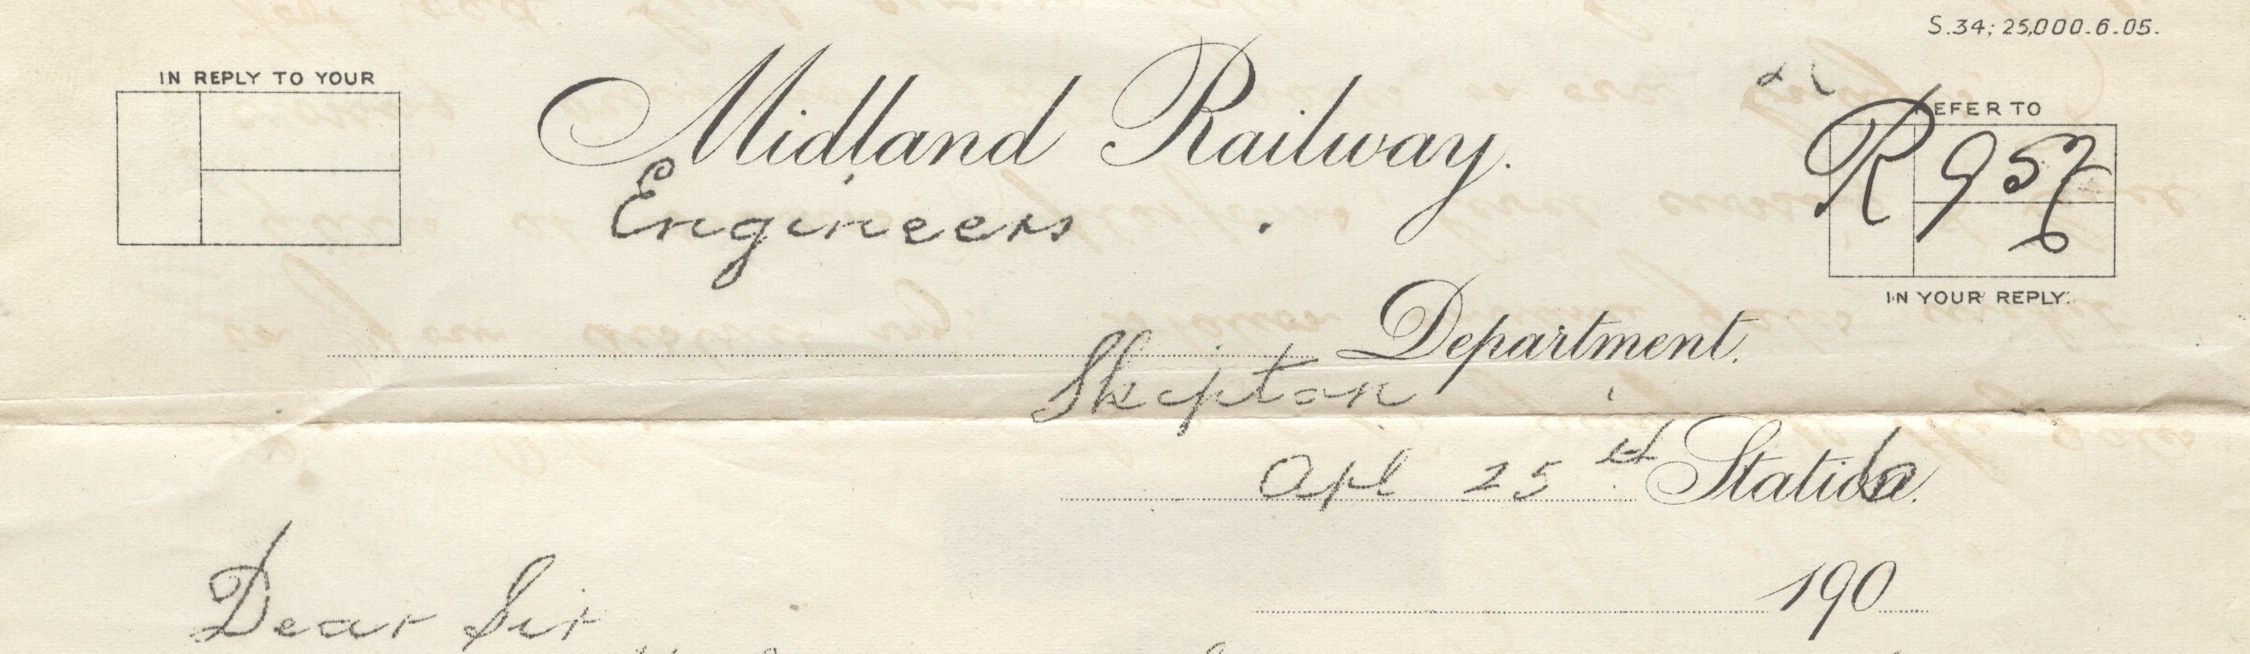 S.34; 25,000.6.05.
IN REPLY TO YOUR
Midland Railway.
REFER TO
R 957
6
Engineers
IN YOUR REPLY.
Department.
Skipton
Apl 25th Station.
6
190
Dear Sir